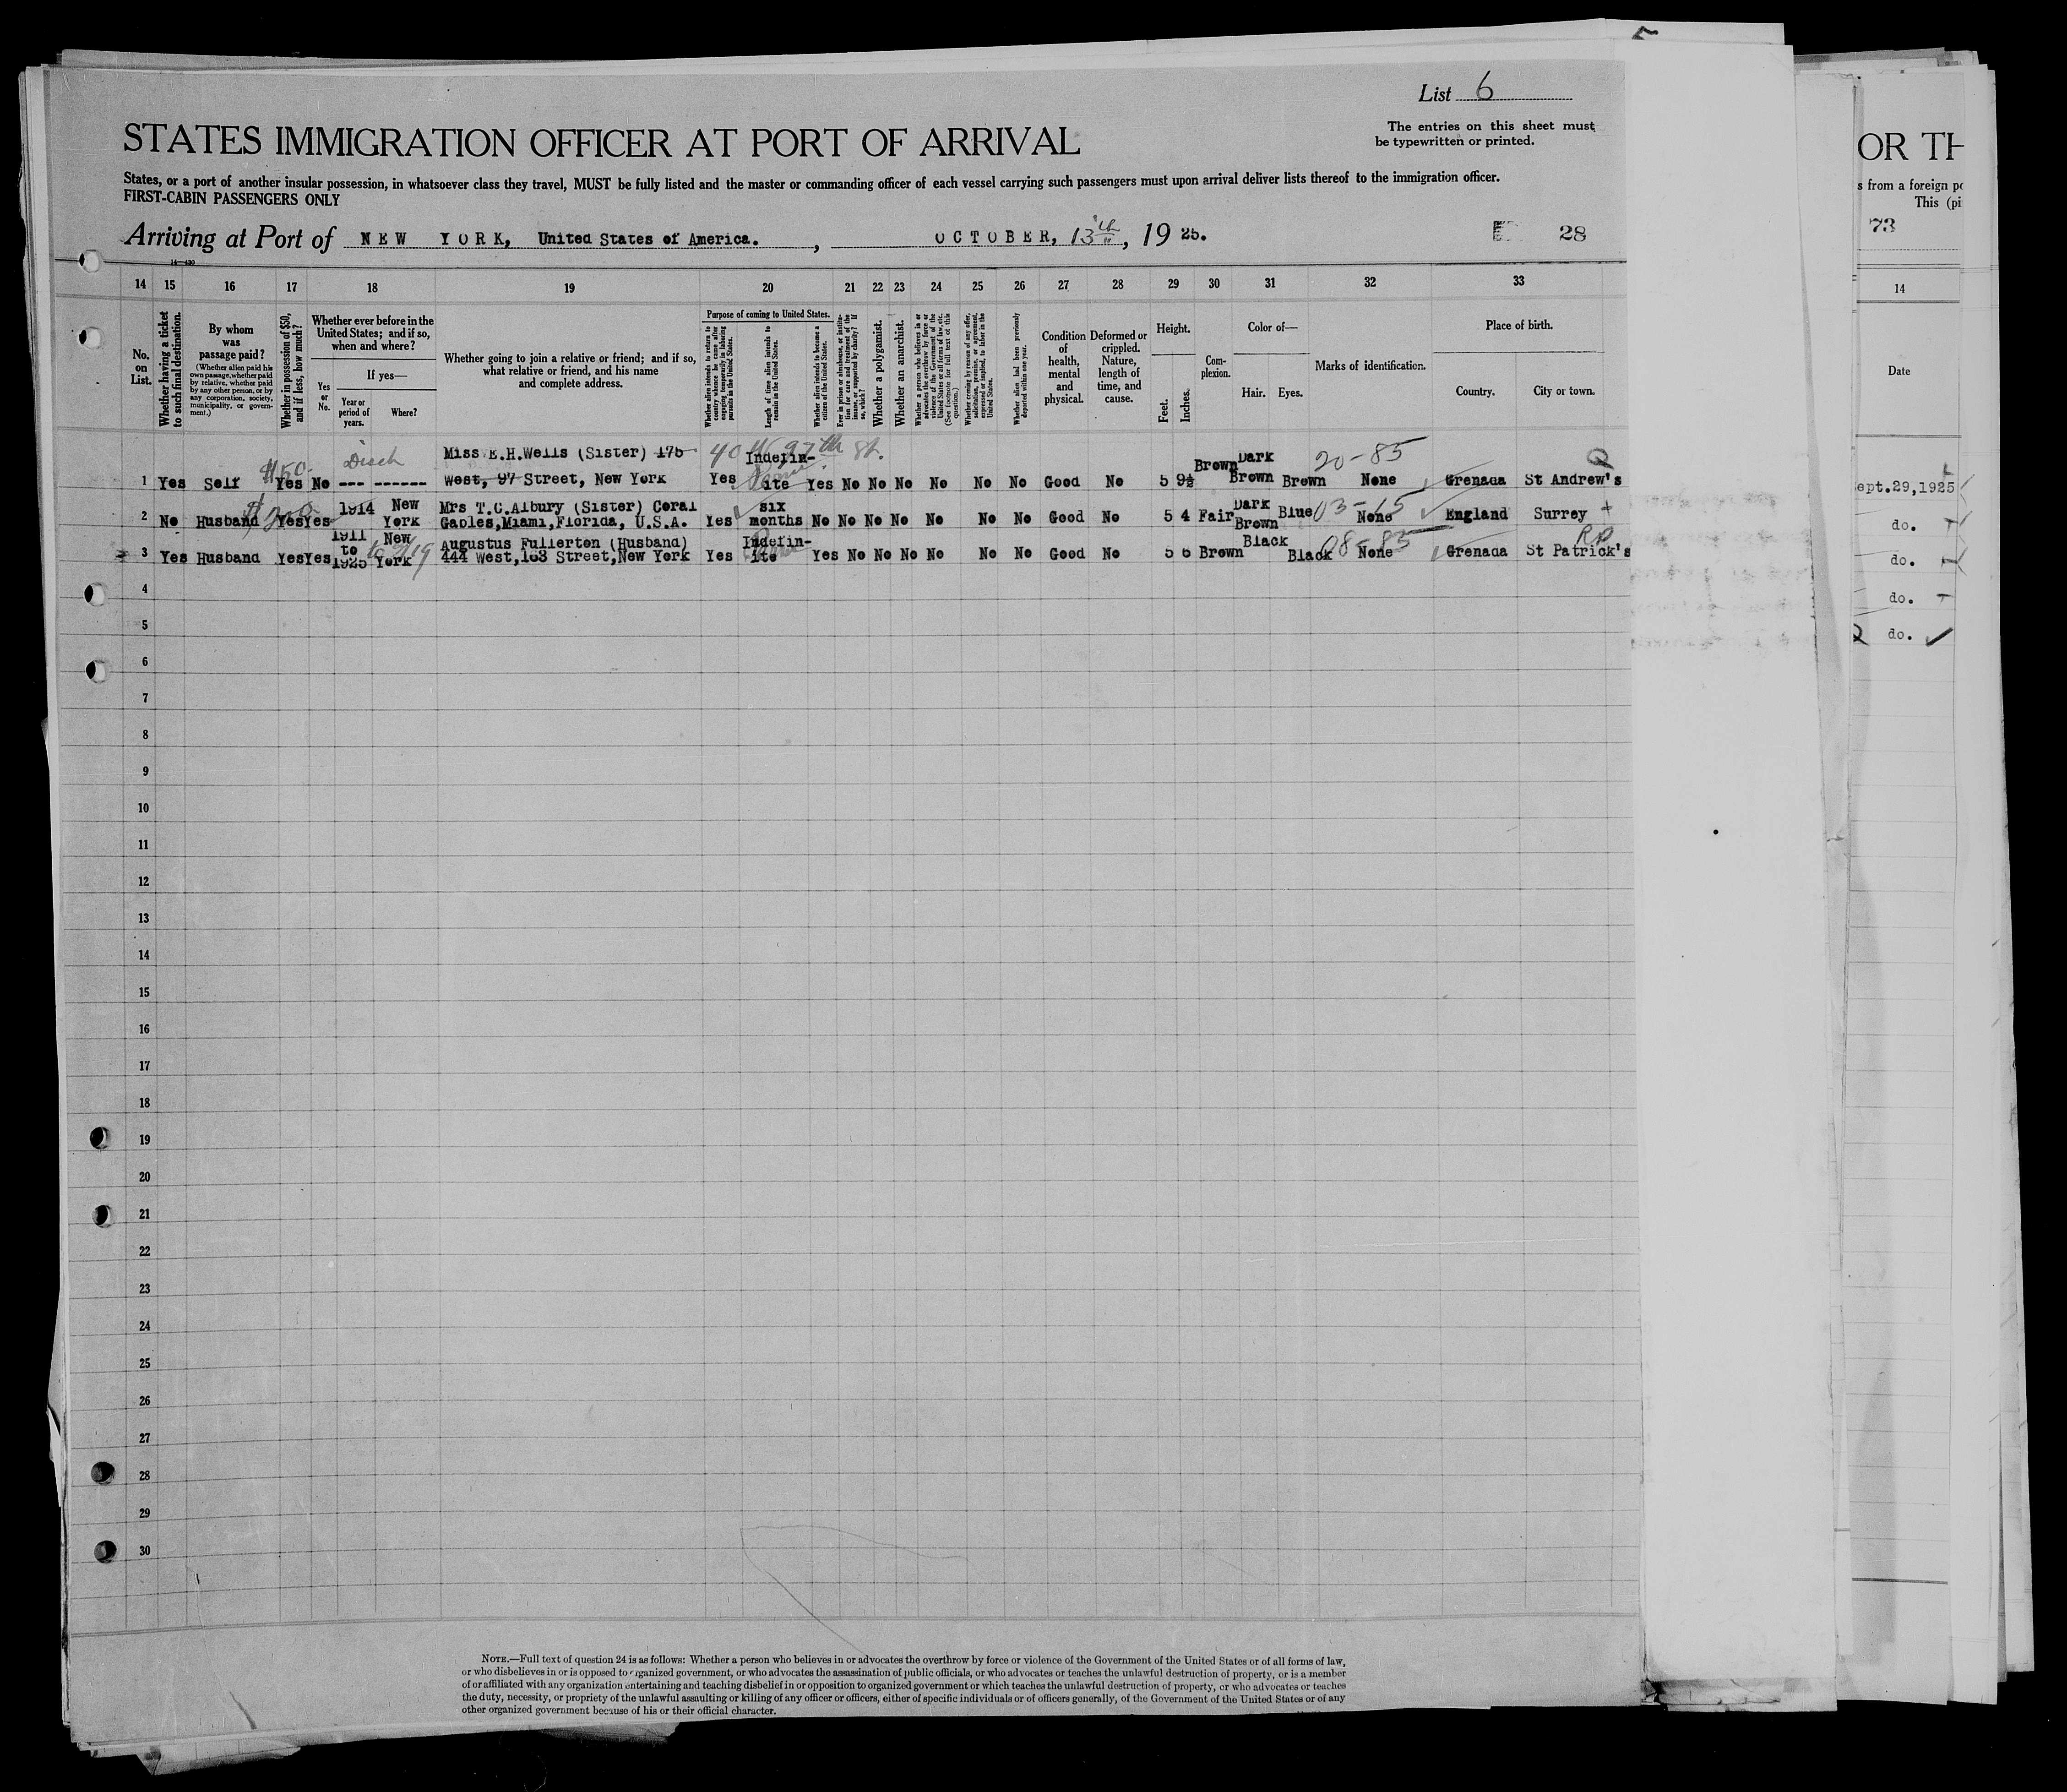 List 6
The entries on this sheet must
be typewritten or printed.
STATES IMMIGRATION OFFICER AT PORT OF ARRIVAL
States, or a port of another insular possession, in whatsoever class they travel, MUST be fully listed and the master or commanding officer of each vessel carrying such passengers must upon arrival deliver lists thereof to the immigration officer.
FIRST-CABIN PASSENGERS ONLY
Arriving at Port of NEW YORK, United States of America. , OCTOBER, 13th, 19 25. 28
14—430
14 15 16 17 18 19 20 21 22 23 24 25 26 27 28 29 30 31 32 33
No. on List.
Whether having a ticket to such final destination.
By whom was passage paid?
(Whether alien paid his own passage, whether paid by relative, whether paid by any other person, or by any corporation, society, municipality, or government.)
Whether in possession of $50, and if less, how much?
Whether ever before in the United States; and if so, when and where?
Yes or No.
If yes—
Year or period of years.
Where?
Whether going to join a relative or friend; and if so, what relative or friend, and his name and complete address.
Purpose of coming to United States.
Whether alien intends to return to country whence he came after engaging temporarily in laboring pursuits in the United States.
Length of time alien intends to remain in the United States.
Whether alien intends to become a citizen of the United States.
Ever in prison or almshouse, or institution for care and treatment of the insane, or supported by charity? If so, which?
Whether a polygamist.
Whether an anarchist.
Whether a person who believes in or advocates the overthrow by force or violence of the Government of the United States or all forms of law, etc. (See footnote for full text of this question.)
Whether coming by reason of any offer, solicitation, promise, or agreement, expressed or implied, to labor in the United States.
Whether alien had been previously deported within one year.
Condition of health, mental and physical.
Deformed or crippled. Nature, length of time, and cause.
Height.
Feet. Inches.
Complexion.
Color of—
Hair. Eyes.
Marks of identification.
Place of birth.
Country. City or town.
1 Yes Self $50. Yes No --- ------ Miss E.H.Wells (Sister) 175 West, 97 Street, New York 40 W 97th St. Yes Indefin-ite Yes No No No No No No Good No 5 9½ Brown Dark Brown Brown 20-85 None Grenada St Andrew's Q
2 No Husband Yes Yes 1914 New York Mrs T.C.Albury (Sister) Coral Gables,Miami,Florida, U.S.A. Yes six months No No No No No No No Good No 5 4 Fair Dark Brown Blue 03-15 None England Surrey +
3 Yes Husband Yes Yes 1911 to 1925 New York Augustus Fullerton (Husband) 444 West,163 Street,New York Yes Indefin-ite Yes No No No No No No Good No 5 6 Brown Black Black 08-85 None Grenada St Patrick's
4
5
6
7
8
9
10
11
12
13
14
15
16
17
18
19
20
21
22
23
24
25
26
27
28
29
30
NOTE.—Full text of question 24 is as follows: Whether a person who believes in or advocates the overthrow by force or violence of the Government of the United States or of all forms of law,
or who disbelieves in or is opposed to organized government, or who advocates the assassination of public officials, or who advocates or teaches the unlawful destruction of property, or is a member
of or affiliated with any organization entertaining and teaching disbelief in or opposition to organized government or which teaches the unlawful destruction of property, or who advocates or teaches
the duty, necessity, or propriety of the unlawful assaulting or killing of any officer or officers, either of specific individuals or of officers generally, of the Government of the United States or of any
other organized government because of his or their official character.
OR TH
s from a foreign po
This (pi
73
14
Date
ept.29,1925
do.
do.
do.
do.